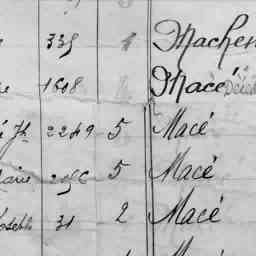 335 1 Machen
1608 Macé Décéd
Jh 2249 5 Macé
Marie 5 Macé
Joseph 31 2 Macé